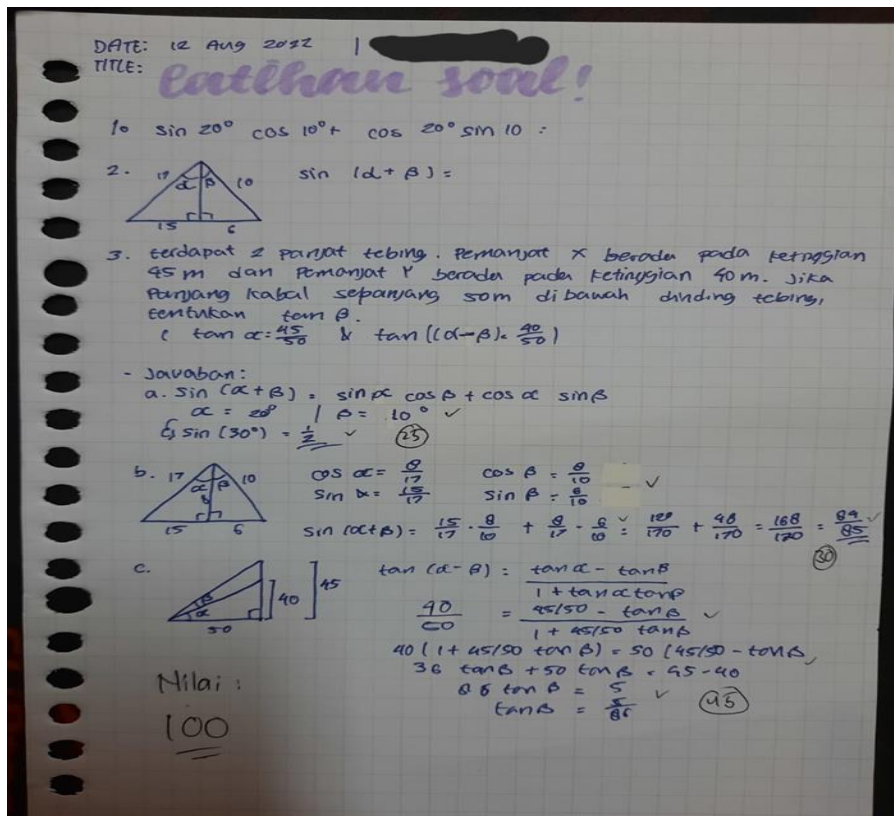 DATE: 12 Aug 2022 |
TITLE: Latihan soal!
1. sin 20° cos 10° + cos 20° sin 10 :
2. 17 α β 10 15 6 sin (α + β) =
3. terdapat 2 panjat tebing. Pemanjat X berada pada ketinggian
45 m dan Pemanjat Y berada pada ketinggian 40 m. Jika
Panjang kabal sepanjang 50m dibawah dinding tebing,
tentukan tan β.
( tan α = 45/50 & tan ((α-β) = 40/50)
- Jawaban:
a. sin (α + β) = sin α cos β + cos α sin β
α = 20° | β = 10° ✓
↳ sin (30°) = 1/2 ✓ 25
b. 17 α β 10 8 15 6
cos α = 8/17 cos β = 8/10
sin α = 15/17 sin β = 6/10 ✓
sin (α+β) = 15/17 · 8/10 + 8/17 · 6/10 = 120/170 + 48/170 = 168/170 = 84/85 ✓
30
c. β α 50 40 45
tan (α - β) = tan α - tan β / 1 + tan α tan β
40/50 = 45/50 - tan β / 1 + 45/50 tan β ✓
40 (1 + 45/50 tan β) = 50 (45/50 - tan β ✓
36 tan β + 50 tan β = 45 - 40
86 tan β = 5 ✓
tan β = 5/86 45
Nilai :
100